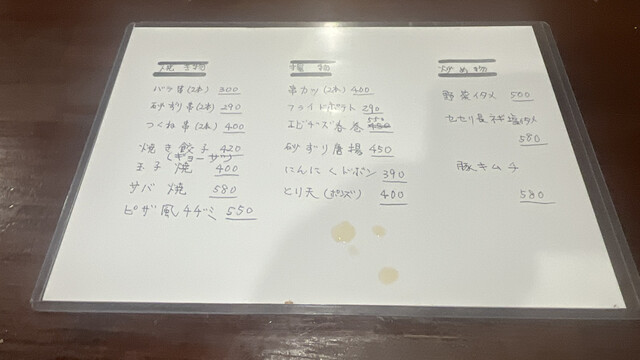 焼き物
バラ串(2本) 300
砂ずり串(2本) 290
つくね串(2本) 400
焼き餃子 420
(ギョーザ)
玉子焼 400
サバ焼 580
ピザ風チヂミ 550
揚物
串カツ(2本) 400
フライドポテト 290
エビチーズ春巻 550
砂ずり唐揚 450
にんにくドボン 390
とり天(ポンズ) 400
炒め物
野菜イタメ 500
セセリ長ネギ塩イタメ
580
豚キムチ
580